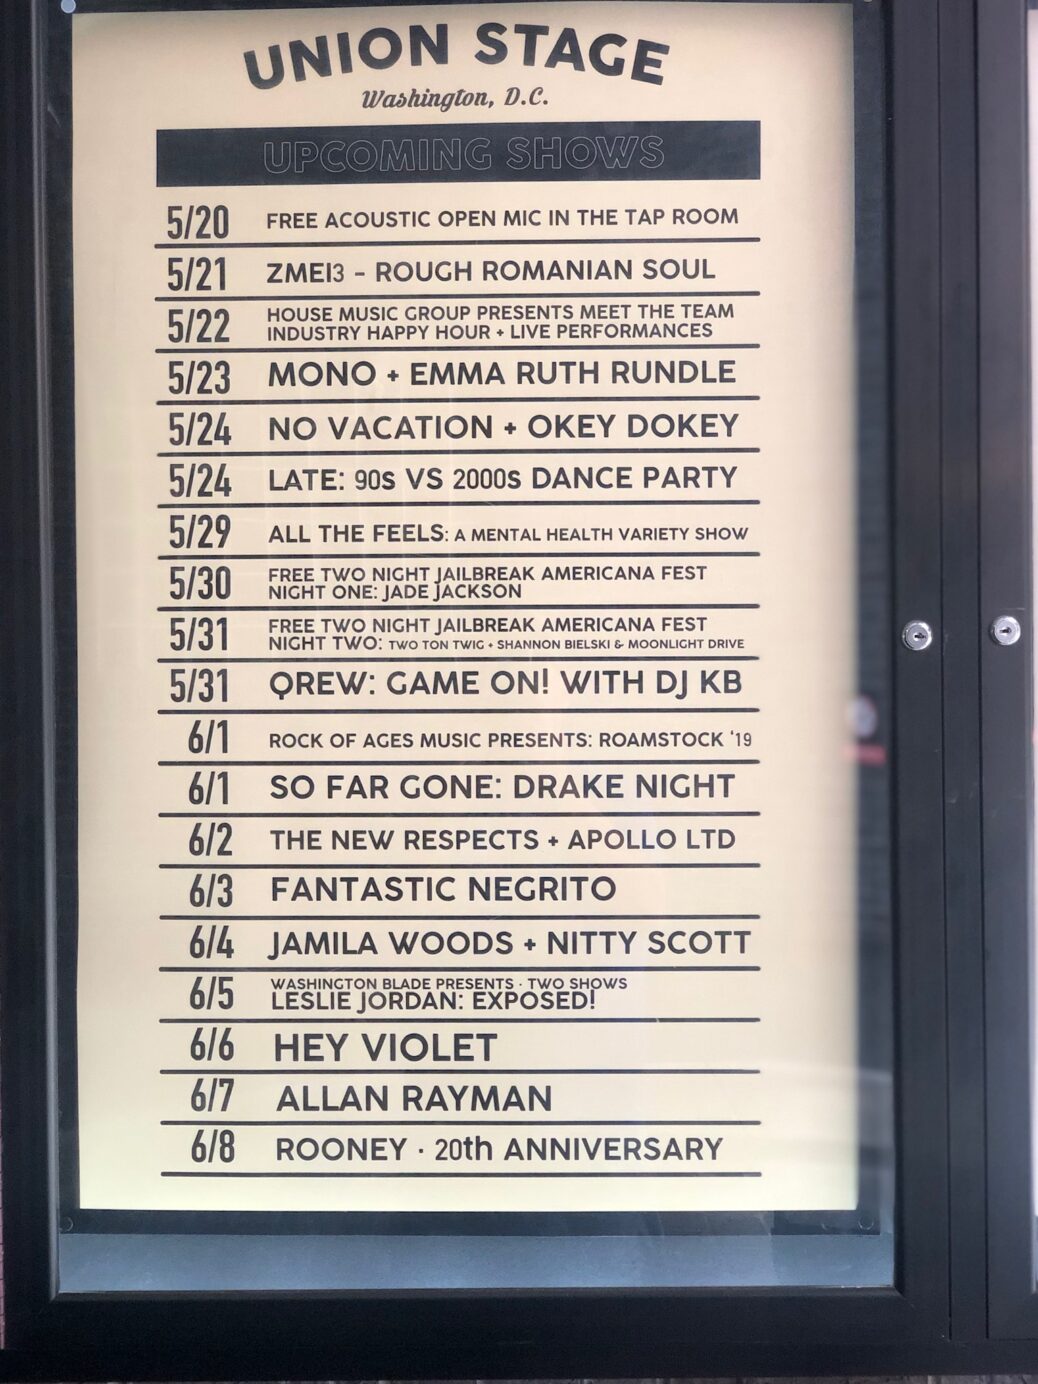 UNION STAGE
Washington, D.C.
UPCOMING SHOWS
5/20 FREE ACOUSTIC OPEN MIC IN THE TAP ROOM
5/21 ZMEI3 - ROUGH ROMANIAN SOUL
5/22 HOUSE MUSIC GROUP PRESENTS MEET THE TEAM
INDUSTRY HAPPY HOUR + LIVE PERFORMANCES
5/23 MONO + EMMA RUTH RUNDLE
5/24 NO VACATION + OKEY DOKEY
5/24 LATE: 90s VS 2000s DANCE PARTY
5/29 ALL THE FEELS: A MENTAL HEALTH VARIETY SHOW
5/30 FREE TWO NIGHT JAILBREAK AMERICANA FEST
NIGHT ONE: JADE JACKSON
5/31 FREE TWO NIGHT JAILBREAK AMERICANA FEST
NIGHT TWO: TWO TON TWIG + SHANNON BIELSKI & MOONLIGHT DRIVE
5/31 QREW: GAME ON! WITH DJ KB
6/1 ROCK OF AGES MUSIC PRESENTS: ROAMSTOCK '19
6/1 SO FAR GONE: DRAKE NIGHT
6/2 THE NEW RESPECTS + APOLLO LTD
6/3 FANTASTIC NEGRITO
6/4 JAMILA WOODS + NITTY SCOTT
6/5 WASHINGTON BLADE PRESENTS · TWO SHOWS
LESLIE JORDAN: EXPOSED!
6/6 HEY VIOLET
6/7 ALLAN RAYMAN
6/8 ROONEY · 20th ANNIVERSARY